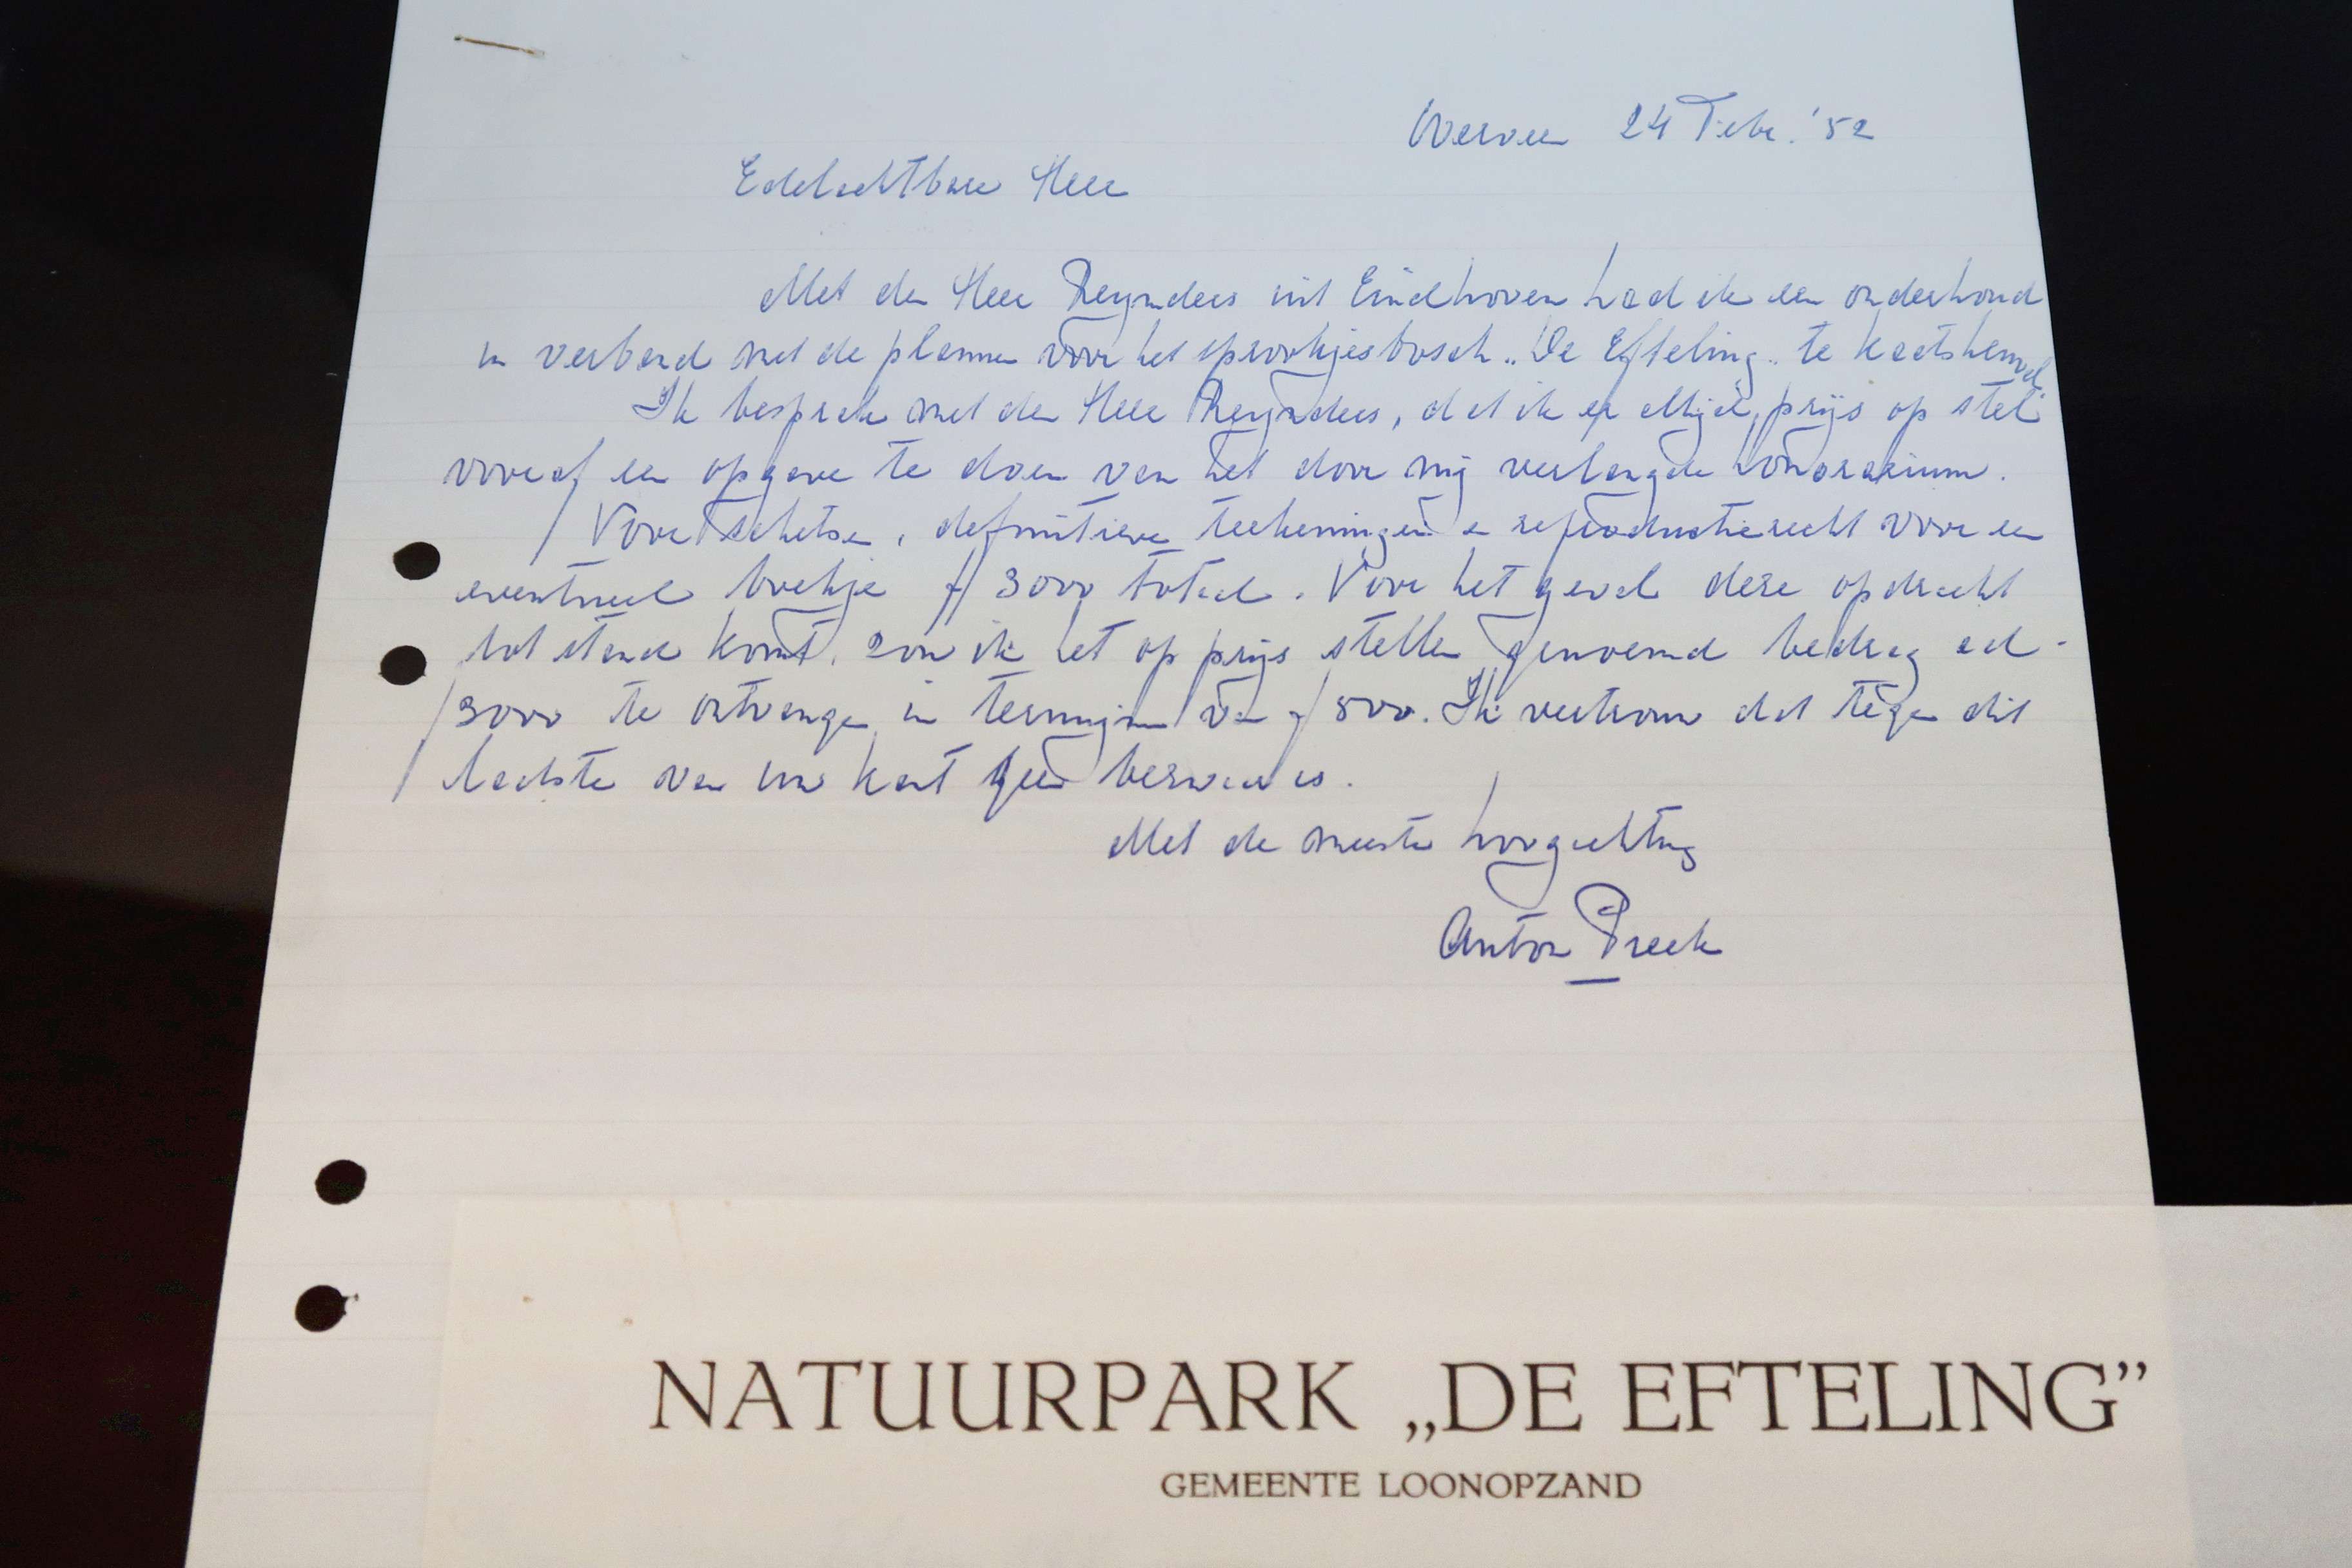 Overveen 24 Febr. '52
Edelachtbare Heer
Met den Heer Reynders uit Eindhoven had ik een onderhoud
in verband met de plannen voor het sprookjesbosch „De Efteling„ te Kaatsheuvel
Ik besprak met den Heer Reynders, dat ik er altijd prijs op stel
vooraf een opgave te doen van het door mij verlangde honorarium.
Voor schetsen, definitieve teekeningen en reproductierecht voor een
eventueel boekje f 3000 totaal. Voor het geval deze opdracht
tot stand komt, zou ik het op prijs stellen genoemd bedrag ad -
f 3000 te ontvangen in termijnen van f 500. Ik vertrouw dat tegen dit
laatste van uw kant geen bezwaar is.
Met de meeste hoogachting
Anton Pieck
NATUURPARK „DE EFTELING”
GEMEENTE LOONOPZAND